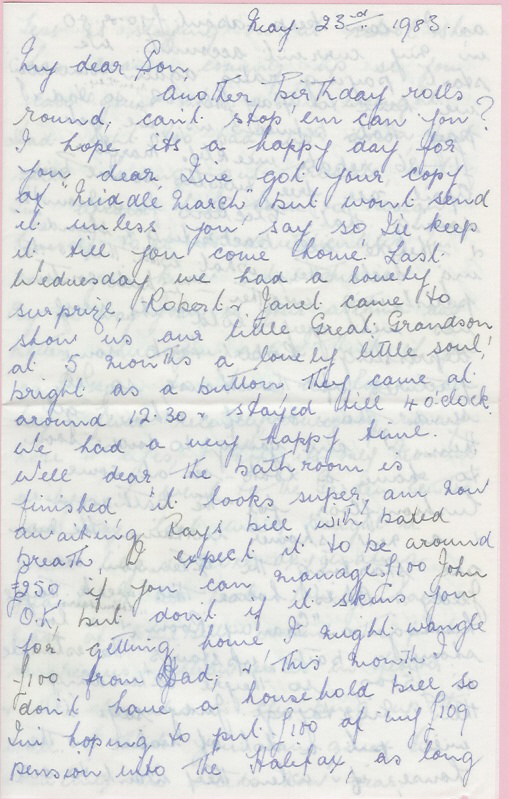 May. 23rd 1983.
My dear Son
Another Birthday rolls
round, can't stop 'em can you?
I hope its a happy day for
you dear, I've got your copy
of "Middle March" but wont send
it unless you say so, I'll keep
it till you come home. Last
Wednesday we had a lovely
surprize, Robert & Janet came to
show us our little Great. Grandson
at 5 months a lovely little soul!
bright as a button they came at
around 12.30 & stayed till 4 o'clock.
We had a very happy time.
Well dear the bathroom is
finished it looks super, am now
awaiting Rays bill with bated
breath, I expect it to be around
£250 if you can manage £100 John
O.K, but don't if it skins you
for getting home I might wangle
£100 from Dad, & this month I
don't have a household bill so
I'm hoping to put £100 of my £109
pension into the Halifax, as long